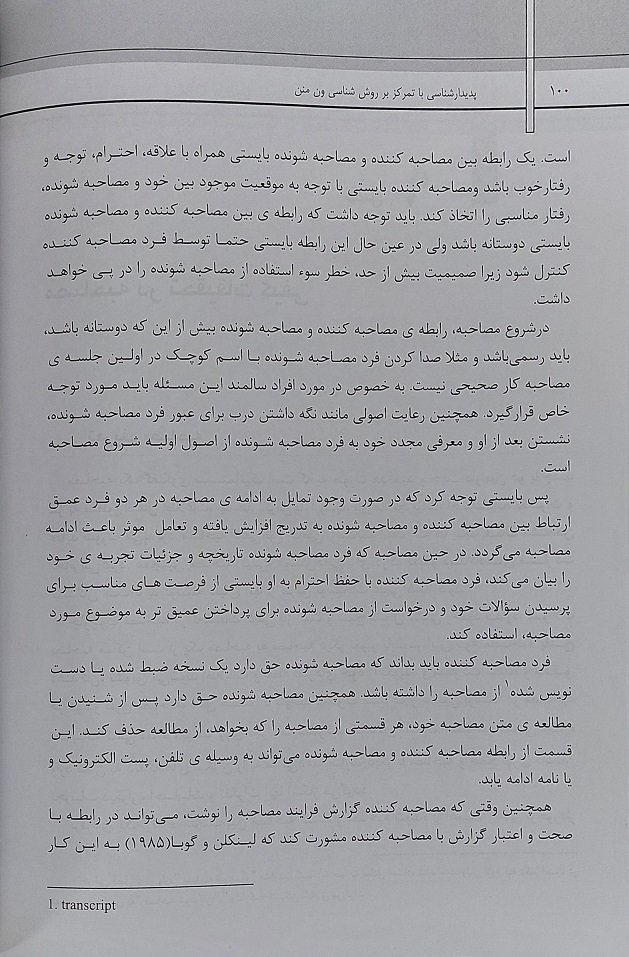 ۱۰۰
پدیدارشناسی با تمرکز بر روش شناسی ون منن
است. یک رابطه بین مصاحبه کننده و مصاحبه شونده بایستی همراه با علاقه، احترام، توجه و
رفتارخوب باشد ومصاحبه کننده بایستی با توجه به موقعیت موجود بین خود و مصاحبه شونده،
رفتار مناسبی را اتخاذ کند. باید توجه داشت که رابطه ی بین مصاحبه کننده و مصاحبه شونده
بایستی دوستانه باشد ولی در عین حال این رابطه بایستی حتما توسط فرد مصاحبه کننده
کنترل شود زیرا صمیمیت بیش از حد، خطر سوء استفاده از مصاحبه شونده را در پی خواهد
داشت.
درشروع مصاحبه، رابطه ی مصاحبه کننده و مصاحبه شونده بیش از این که دوستانه باشد،
باید رسمی‌باشد و مثلا صدا کردن فرد مصاحبه شونده با اسم کوچک در اولین جلسه ی
مصاحبه کار صحیحی نیست. به خصوص در مورد افراد سالمند این مسئله باید مورد توجه
خاص قرارگیرد. همچنین رعایت اصولی مانند نگه داشتن درب برای عبور فرد مصاحبه شونده،
نشستن بعد از او و معرفی مجدد خود به فرد مصاحبه شونده از اصول اولیه شروع مصاحبه
است.
پس بایستی توجه کرد که در صورت وجود تمایل به ادامه ی مصاحبه در هر دو فرد عمق
ارتباط بین مصاحبه کننده و مصاحبه شونده به تدریج افزایش یافته و تعامل موثر باعث ادامه
مصاحبه می‌گردد. در حین مصاحبه که فرد مصاحبه شونده تاریخچه و جزئیات تجربه ی خود
را بیان می‌کند، فرد مصاحبه کننده با حفظ احترام به او بایستی از فرصت های مناسب برای
پرسیدن سؤالات خود و درخواست از مصاحبه شونده برای پرداختن عمیق تر به موضوع مورد
مصاحبه، استفاده کند.
فرد مصاحبه کننده باید بداند که مصاحبه شونده حق دارد یک نسخه ضبط شده یا دست
نویس شده۱ از مصاحبه را داشته باشد. همچنین مصاحبه شونده حق دارد پس از شنیدن یا
مطالعه ی متن مصاحبه خود، هر قسمتی از مصاحبه را که بخواهد، از مطالعه حذف کند. این
قسمت از رابطه مصاحبه کننده و مصاحبه شونده می‌تواند به وسیله ی تلفن، پست الکترونیک و
یا نامه ادامه یابد.
همچنین وقتی که مصاحبه کننده گزارش فرایند مصاحبه را نوشت، می‌تواند در رابطه با
صحت و اعتبار گزارش با مصاحبه کننده مشورت کند که لینکلن و گوبا(۱۹۸۵) به این کار
1. transcript